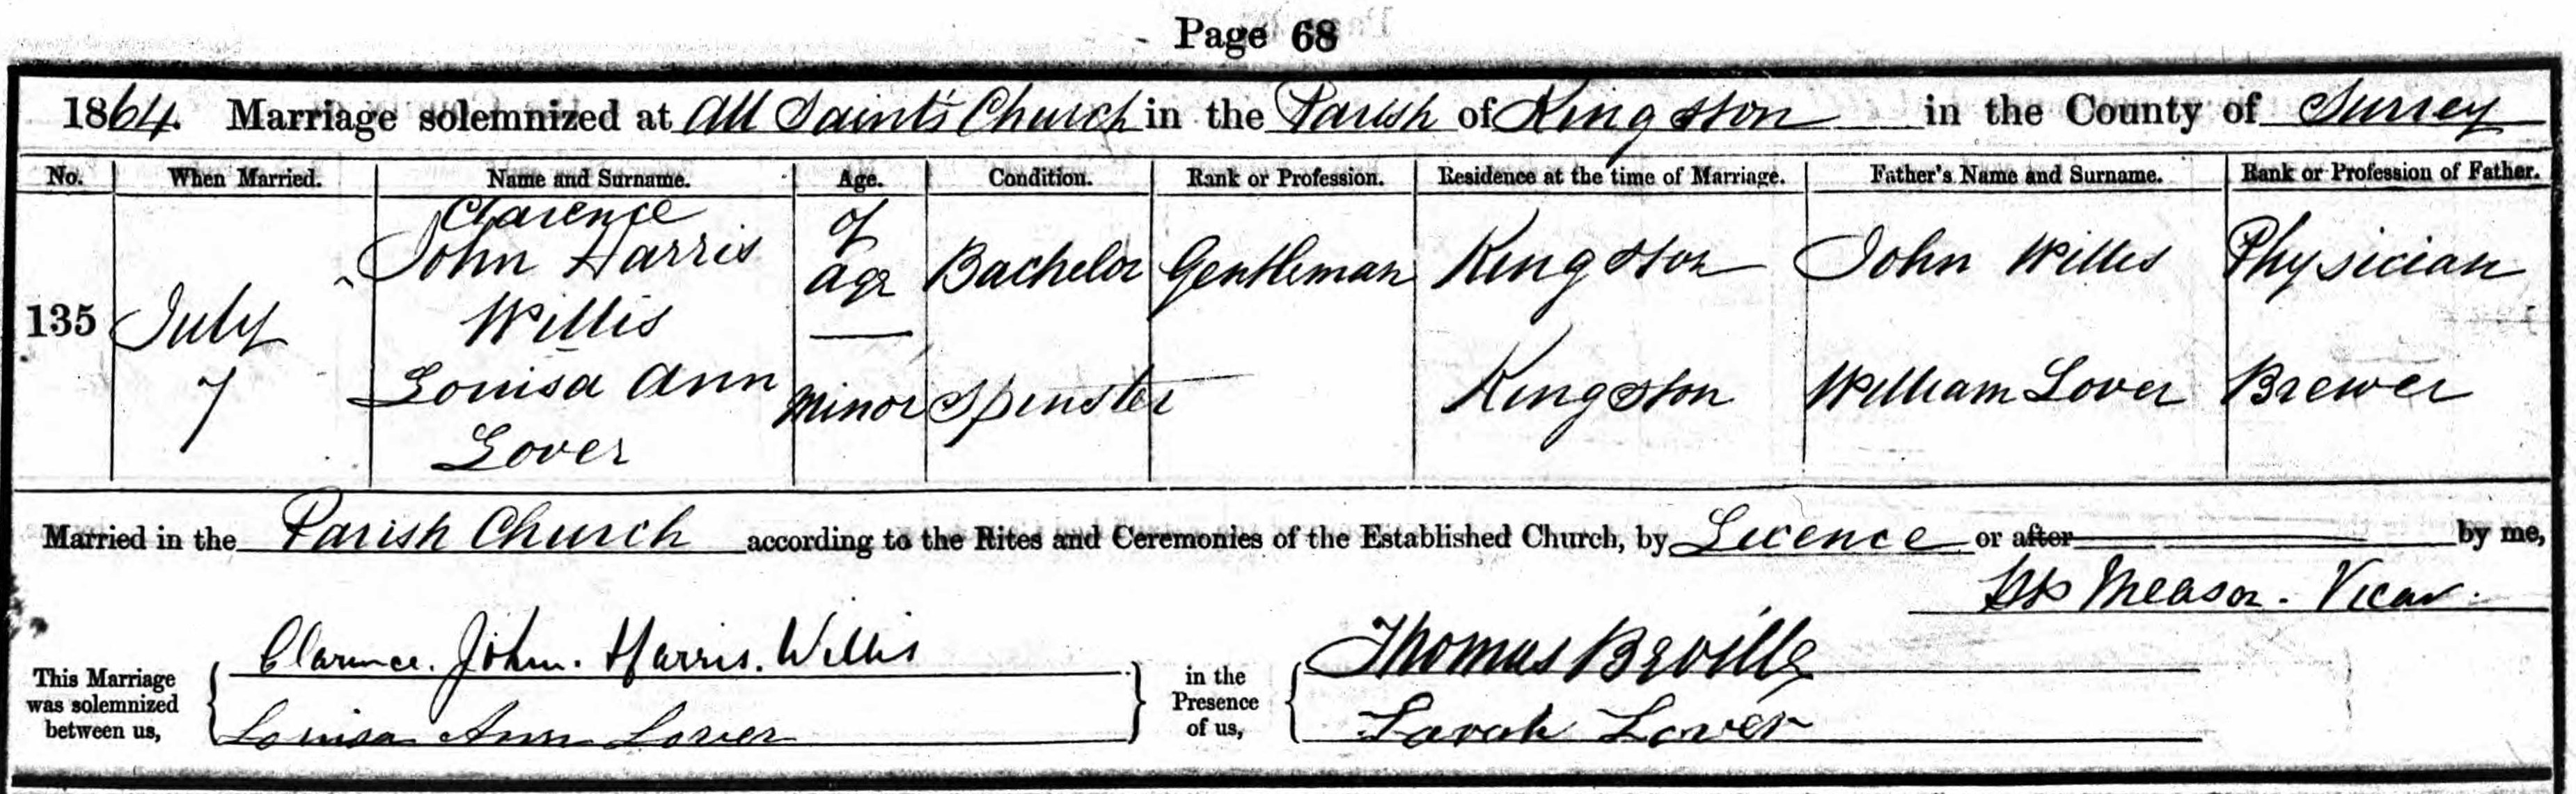 Page 68
1864. Marriage solemnized at All Saint's Church in the Parish of Kingston in the County of Surrey
No. When Married. Name and Surname. Age. Condition. Rank or Profession. Residence at the time of Marriage. Father's Name and Surname. Rank or Profession of Father.
135 July 7
Clarence
John Harris
Willis
of
age
Bachelor Gentleman Kingston John Willis Physician
Louisa Ann
Lover
Minor Spinster Kingston William Lover Brewer
Married in the Parish Church according to the Rites and Ceremonies of the Established Church, by Licence or after by me,
Measor. Vicar.
This Marriage
was solemnized
between us,
Clarence. John. Harris. Willis
Louisa Ann Lover
in the
Presence
of us,
Thomas Beville
Sarah Lover